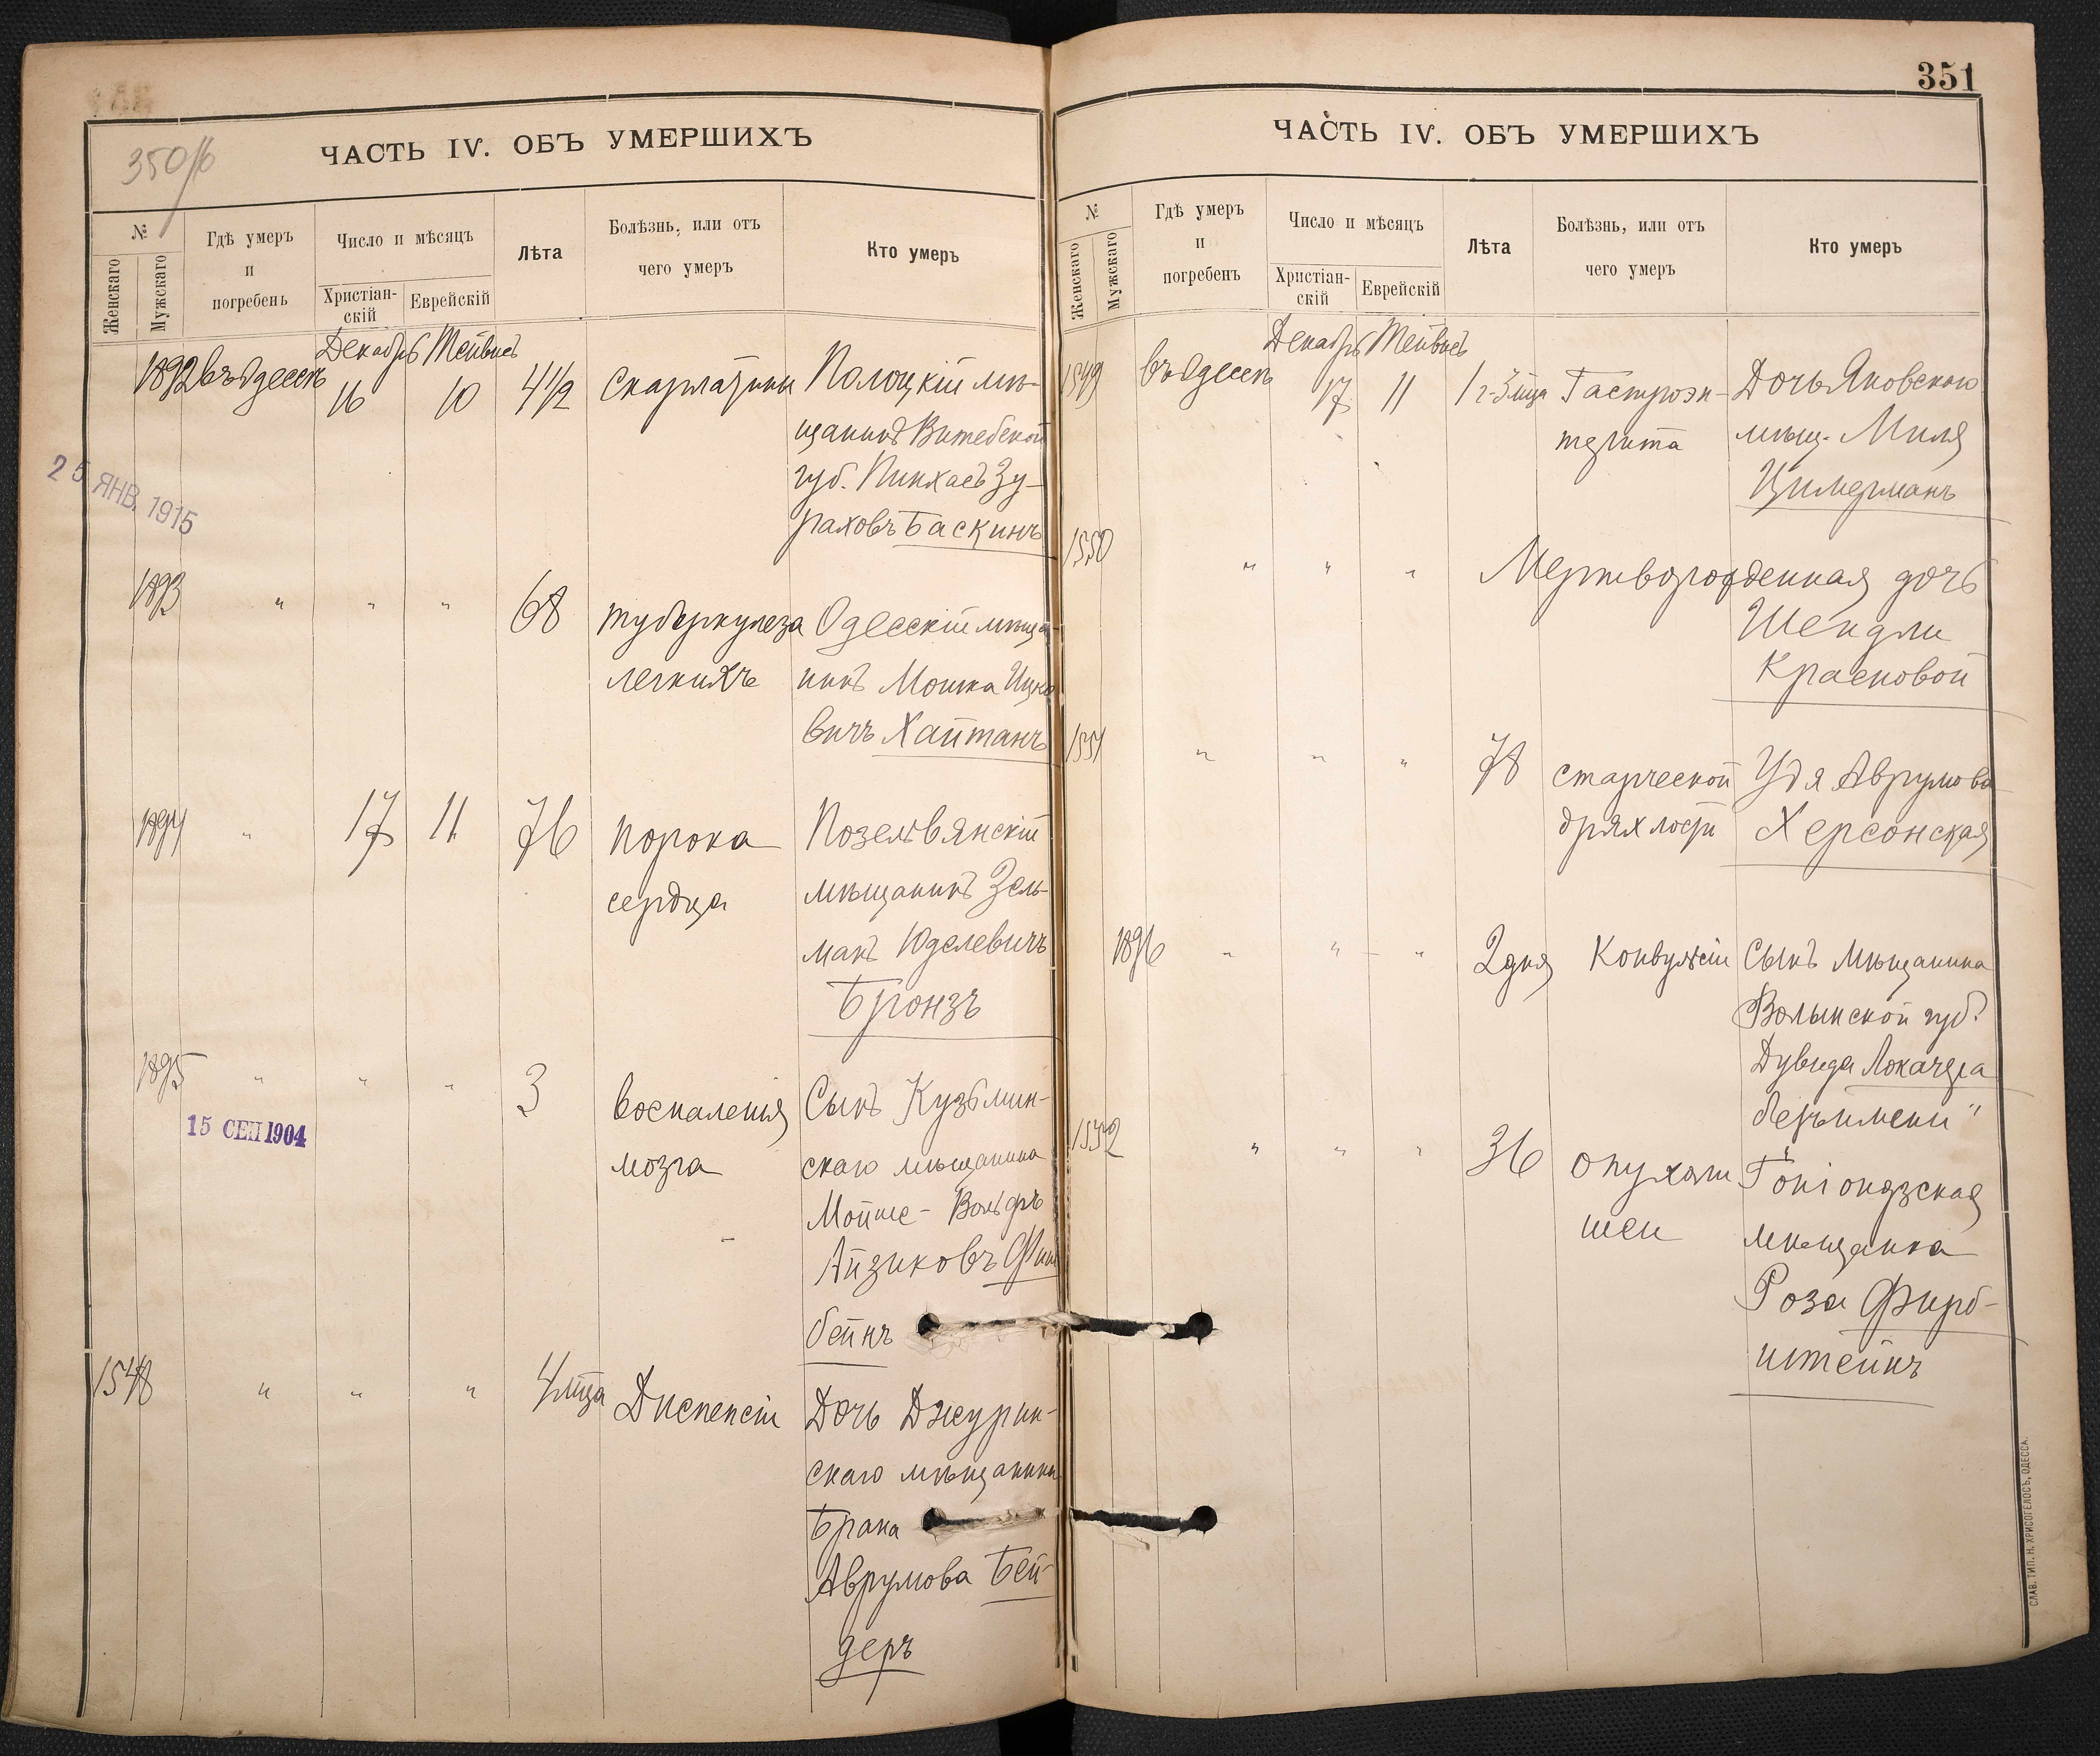 350/б
ЧАСТЬ IV. ОБЪ УМЕРШИХЪ
№
Женскаго
Мужскаго
Гдѣ умеръ
и
погребенъ
Число и мѣсяцъ
Христіан-
скій
Еврейскій
Лѣта
Болѣзнь, или отъ
чего умеръ
Кто умеръ
Декабрь Тейвесъ
1892 въ Одессѣ 16 10 4 1/2 Скарлатины Полоцкій мѣ-
щанинъ Витебской
губ. Пинхасъ Зу-
раховъ Баскинъ
25 ЯНВ. 1915
1893 " " " 68 туберкулеза Одесскій мѣща-
легкихъ нинъ Мошка Ицко
вичъ Хайтанъ
1894 " 17 11 76 порока Позельвянскій
сердца мѣщанинъ Зель-
манъ Юделевичъ
Бронзъ
1895 " " " 3 воспаленія Сынъ Кузьмин-
15 СЕН 1904
мозга скаго мѣщанина
Мойше-Вольфъ
Айзиковъ Фин
бейнъ
1548 " " " 4 м-ца Диспепсіи Дочь Джурин-
скаго мѣщанина
Брана
Аврумова Бей-
деръ
351
ЧАСТЬ IV. ОБЪ УМЕРШИХЪ
№
Женскаго
Мужскаго
Гдѣ умеръ
и
погребенъ
Число и мѣсяцъ
Христіан-
скій
Еврейскій
Лѣта
Болѣзнь, или отъ
чего умеръ
Кто умеръ
Декабрь Тейвесъ
1549 въ Одессѣ 17 11 1 г. 3 м-ца Гастроэн- Дочь Яновскаго
терита мѣщ. Миля
Цимерманъ
1550 " " " Мертворожденная дочь
Шендли
Красновой
1551 " " " 78 старческой Удя Аврумова
дряхлости Херсонская
1896 " " " 2 дня Конвульсіи Сынъ мѣщанина
Волынской губ.
Дувида Локачера
безъ имени"
1552 " " " 36 опухоли Гоніондзская
шеи мѣщанка
Роза Фирб-
штейнъ
СЛАВ. ТИП. Н. ХРИСОГЕЛОСЪ, ОДЕССА.